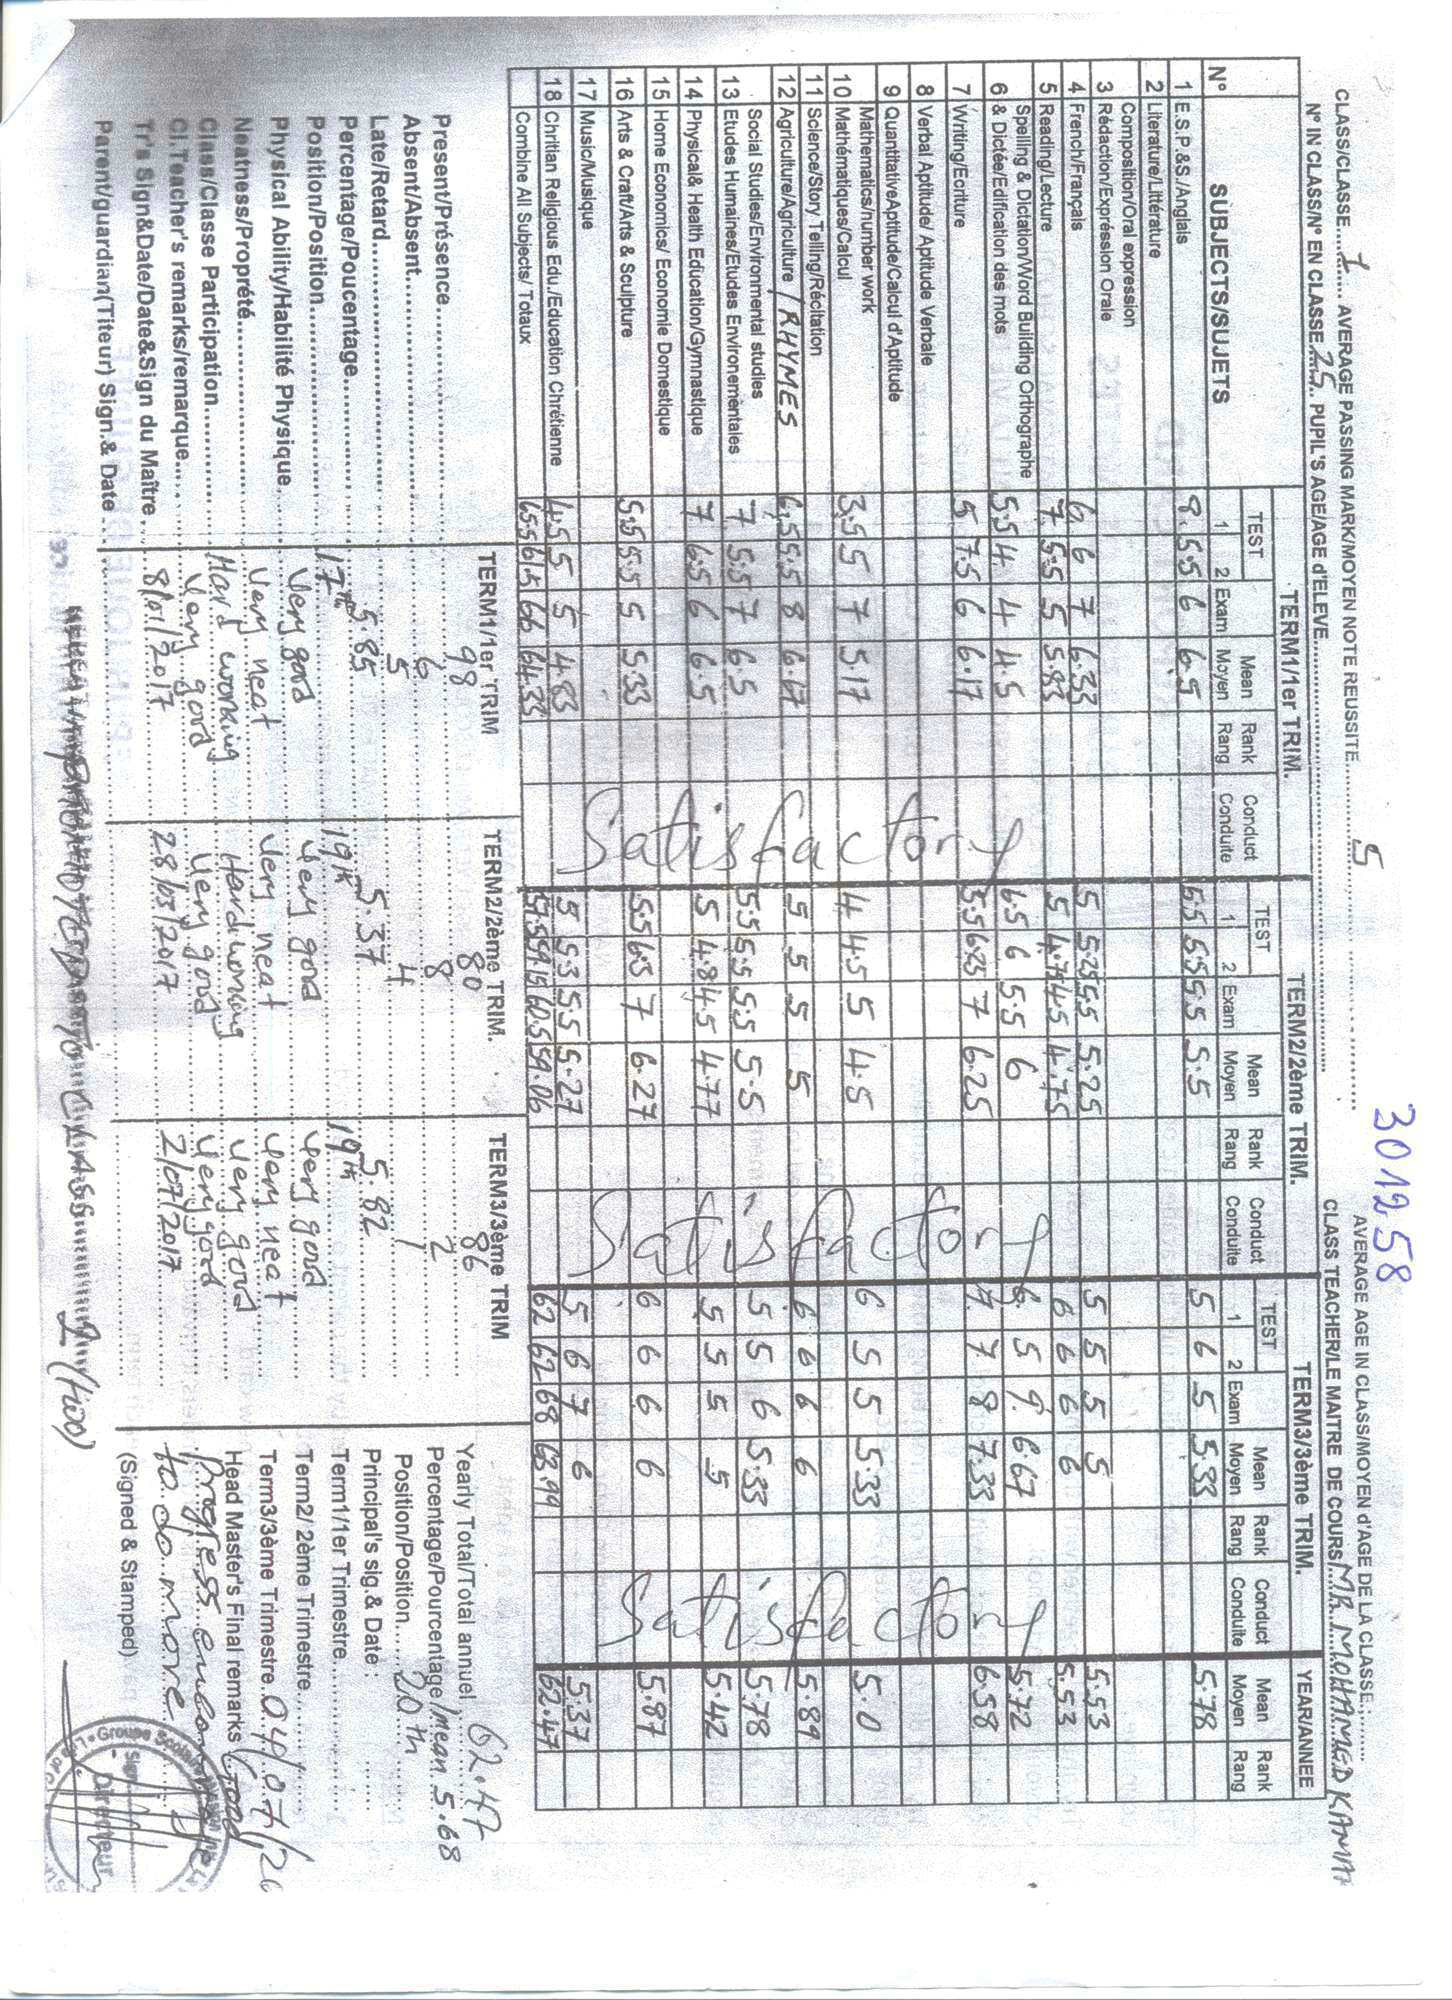 301258
CLASS/CLASSE.......1..... AVERAGE PASSING MARK/MOYEN NOTE REUSSITE..........5.......... AVERAGE AGE IN CLASS/MOYEN d'AGE DE LA CLASSE..........
N° IN CLASS/N° EN CLASSE 25.. PUPIL'S AGE/AGE d'ELEVE.......... CLASS TEACHER/LE MAITRE DE COURS/MR MOHAMED KAMA
N° SUBJECTS/SUJETS TERM1/1er TRIM. TERM2/2ème TRIM. TERM3/3ème TRIM. YEAR/ANNEE
TEST Mean Rank Conduct TEST Mean Rank Conduct TEST Mean Rank Conduct Mean Rank
1 2 Exam Moyen Rang Conduite 1 2 Exam Moyen Rang Conduite 1 2 Exam Moyen Rang Conduite Moyen Rang
1 E.S.P.&S./Anglais 8 5.5 6 6.5 5.5 5.5 5.5 5.5 5 6 5 5.33 5.78
2 Literature/Littérature
Composition/Oral expression
3 Rédaction/Expréssion Orale
4 French/Français 6 6 7 6.33 5 5.25 5.5 5.25 5 5 5 5 5.53
5 Reading/Lecture 7 5.5 5 5.83 5 4.75 4.5 4.75 6 6 6 6 5.53
Spelling & Dictation/Word Building Orthographe
6 & Dictée/Edification des mots 5.5 4 4 4.5 6.5 6 5.5 6 6 5 9 6.67 5.72
7 Writing/Ecriture 5 7.5 6 6.17 5.5 6.25 7 6.25 7 7 8 7.33 6.58
8 Verbal Aptitude/ Aptitude Verbale
9 QuantitativeAptitude/Calcul d'Aptitude
Mathematics/number work
10 Mathématiques/Calcul 3.5 5 7 5.17 4 4.5 5 4.5 6 5 5 5.33 5.0
11 Science/Story Telling/Récitation
12 Agriculture/Agriculture / RHYMES 6.5 5.5 8 6.67 5 5 5 5 6 6 6 6 5.89
Social Studies/Environmental studies
13 Etudes Humaines/Etudes Environementales 7 5.5 7 6.5 5.5 5.5 5.5 5.5 5 5 6 5.33 5.78
14 Physical& Health Education/Gymnastique 7 6.5 6 6.5 5 4.8 4.5 4.77 5 5 5 5 5.42
15 Home Economics/ Economie Domestique
16 Arts & Craft/Arts & Sculpture 5.5 5.5 5 5.33 5.5 6.3 7 6.27 6 6 6 6 5.87
17 Music/Musique
18 Chritian Religious Edu./Education Chrétienne 4.5 5 5 4.83 5 5.3 5.5 5.27 5 6 7 6 5.37
Combine All Subjects/ Totaux 65.5 61.5 66 64.33 57.5 59.15 60.5 59.06 62 62 68 63.99 62.47
Satisfactory
Satisfactory
Satisfactory
TERM1/1er TRIM TERM2/2ème TRIM. TERM3/3ème TRIM
Present/Présence.......... 98 80 86
Absent/Absent.......... 6 8 2
Late/Retard.......... 5 4 1
Percentage/Poucentage.......... 5.85 5.37 5.82
Position/Position.......... 17th 19th 19th
Physical Ability/Habilité Physique.... Very good Very good Very good
Neatness/Propreté.......... Very neat Very neat Very neat
Class/Classe Participation.......... Hard working Hard working Very good
Cl.Teacher's remarks/remarque...... Very good Very good Very good
Tr's Sign&Date/Date&Sign du Maître... 8/01/2017 28/03/2017 2/07/2017
Parent/guardian(Titeur) Sign.& Date
PROMOTED TO CLASS 2 (two)
Yearly Total/Total annuel 62.47
Percentage/Pourcentage/mean 5.68
Position/Position.....20th
Principal's sig.& Date:
Term1/1er Trimestre..........
Term2/ 2ème Trimestre..........
Term3/3ème Trimestre 04/07/20
Head Master's Final remarks Good
progress
to do more
(Signed & Stamped)
Groupe Scolaire
Directeur